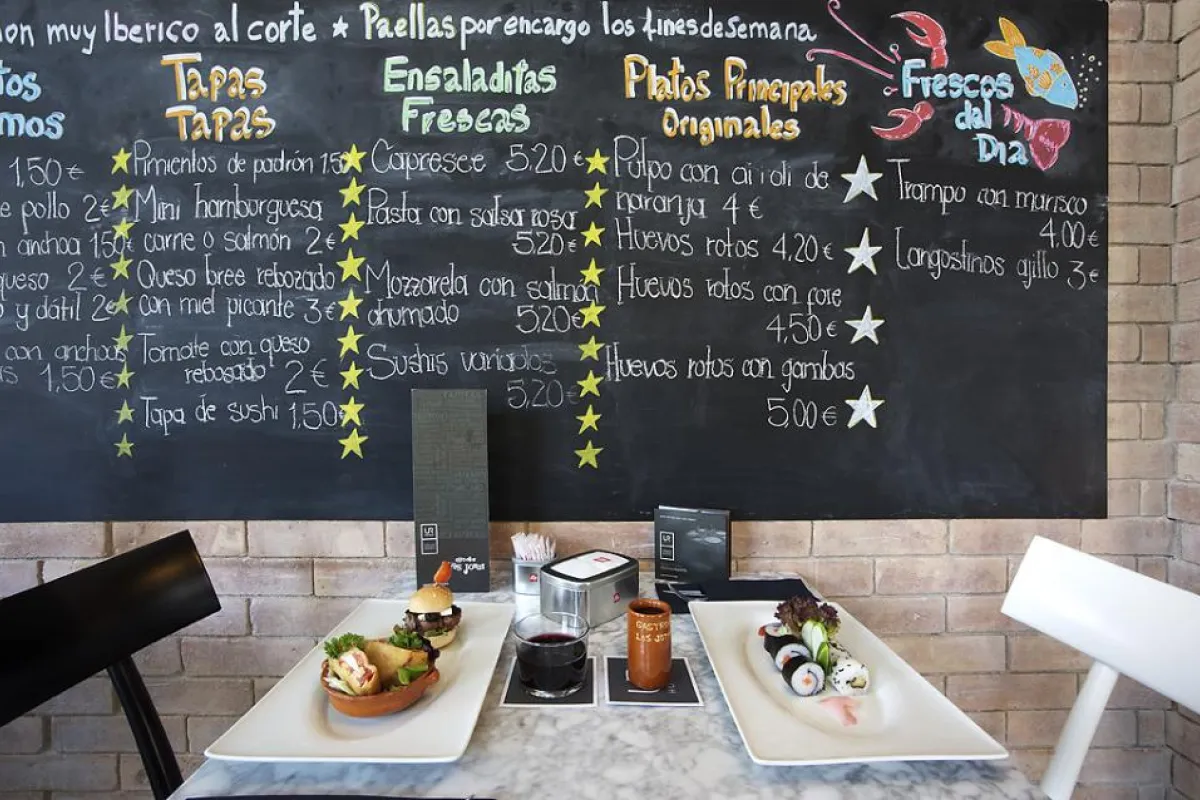 muy Iberico al corte ★ Paellas por encargo los fines de Semana
1,50€
pollo 2€
anchoa 1,50€
queso 2€
y dátil 2€
con anchoas
1,50€
Tapas
Tapas
Pimientos de padrón 1,50
Mini hamburguesa
carne o salmón 2€
Queso bree rebozado
con miel picante 3€
Tomate con queso
rebosado 2€
Tapa de sushi 1,50
Ensaladitas
Frescas
Capresee 5,20€
Pasta con salsa rosa
5,20€
Mozzarela con salmón
ahumado 5,20€
Sushis variados
5,20€
Platos Principales
Originales
Pulpo con ai i oli de
naranja 4€
Huevos rotos 4,20€
Huevos rotos con foie
4,50€
Huevos rotos con gambas
5,00€
Frescos
del
Dia
Trampo con marisco
4,00€
Langostinos ajillo 3€
GASTRO
LOS JO